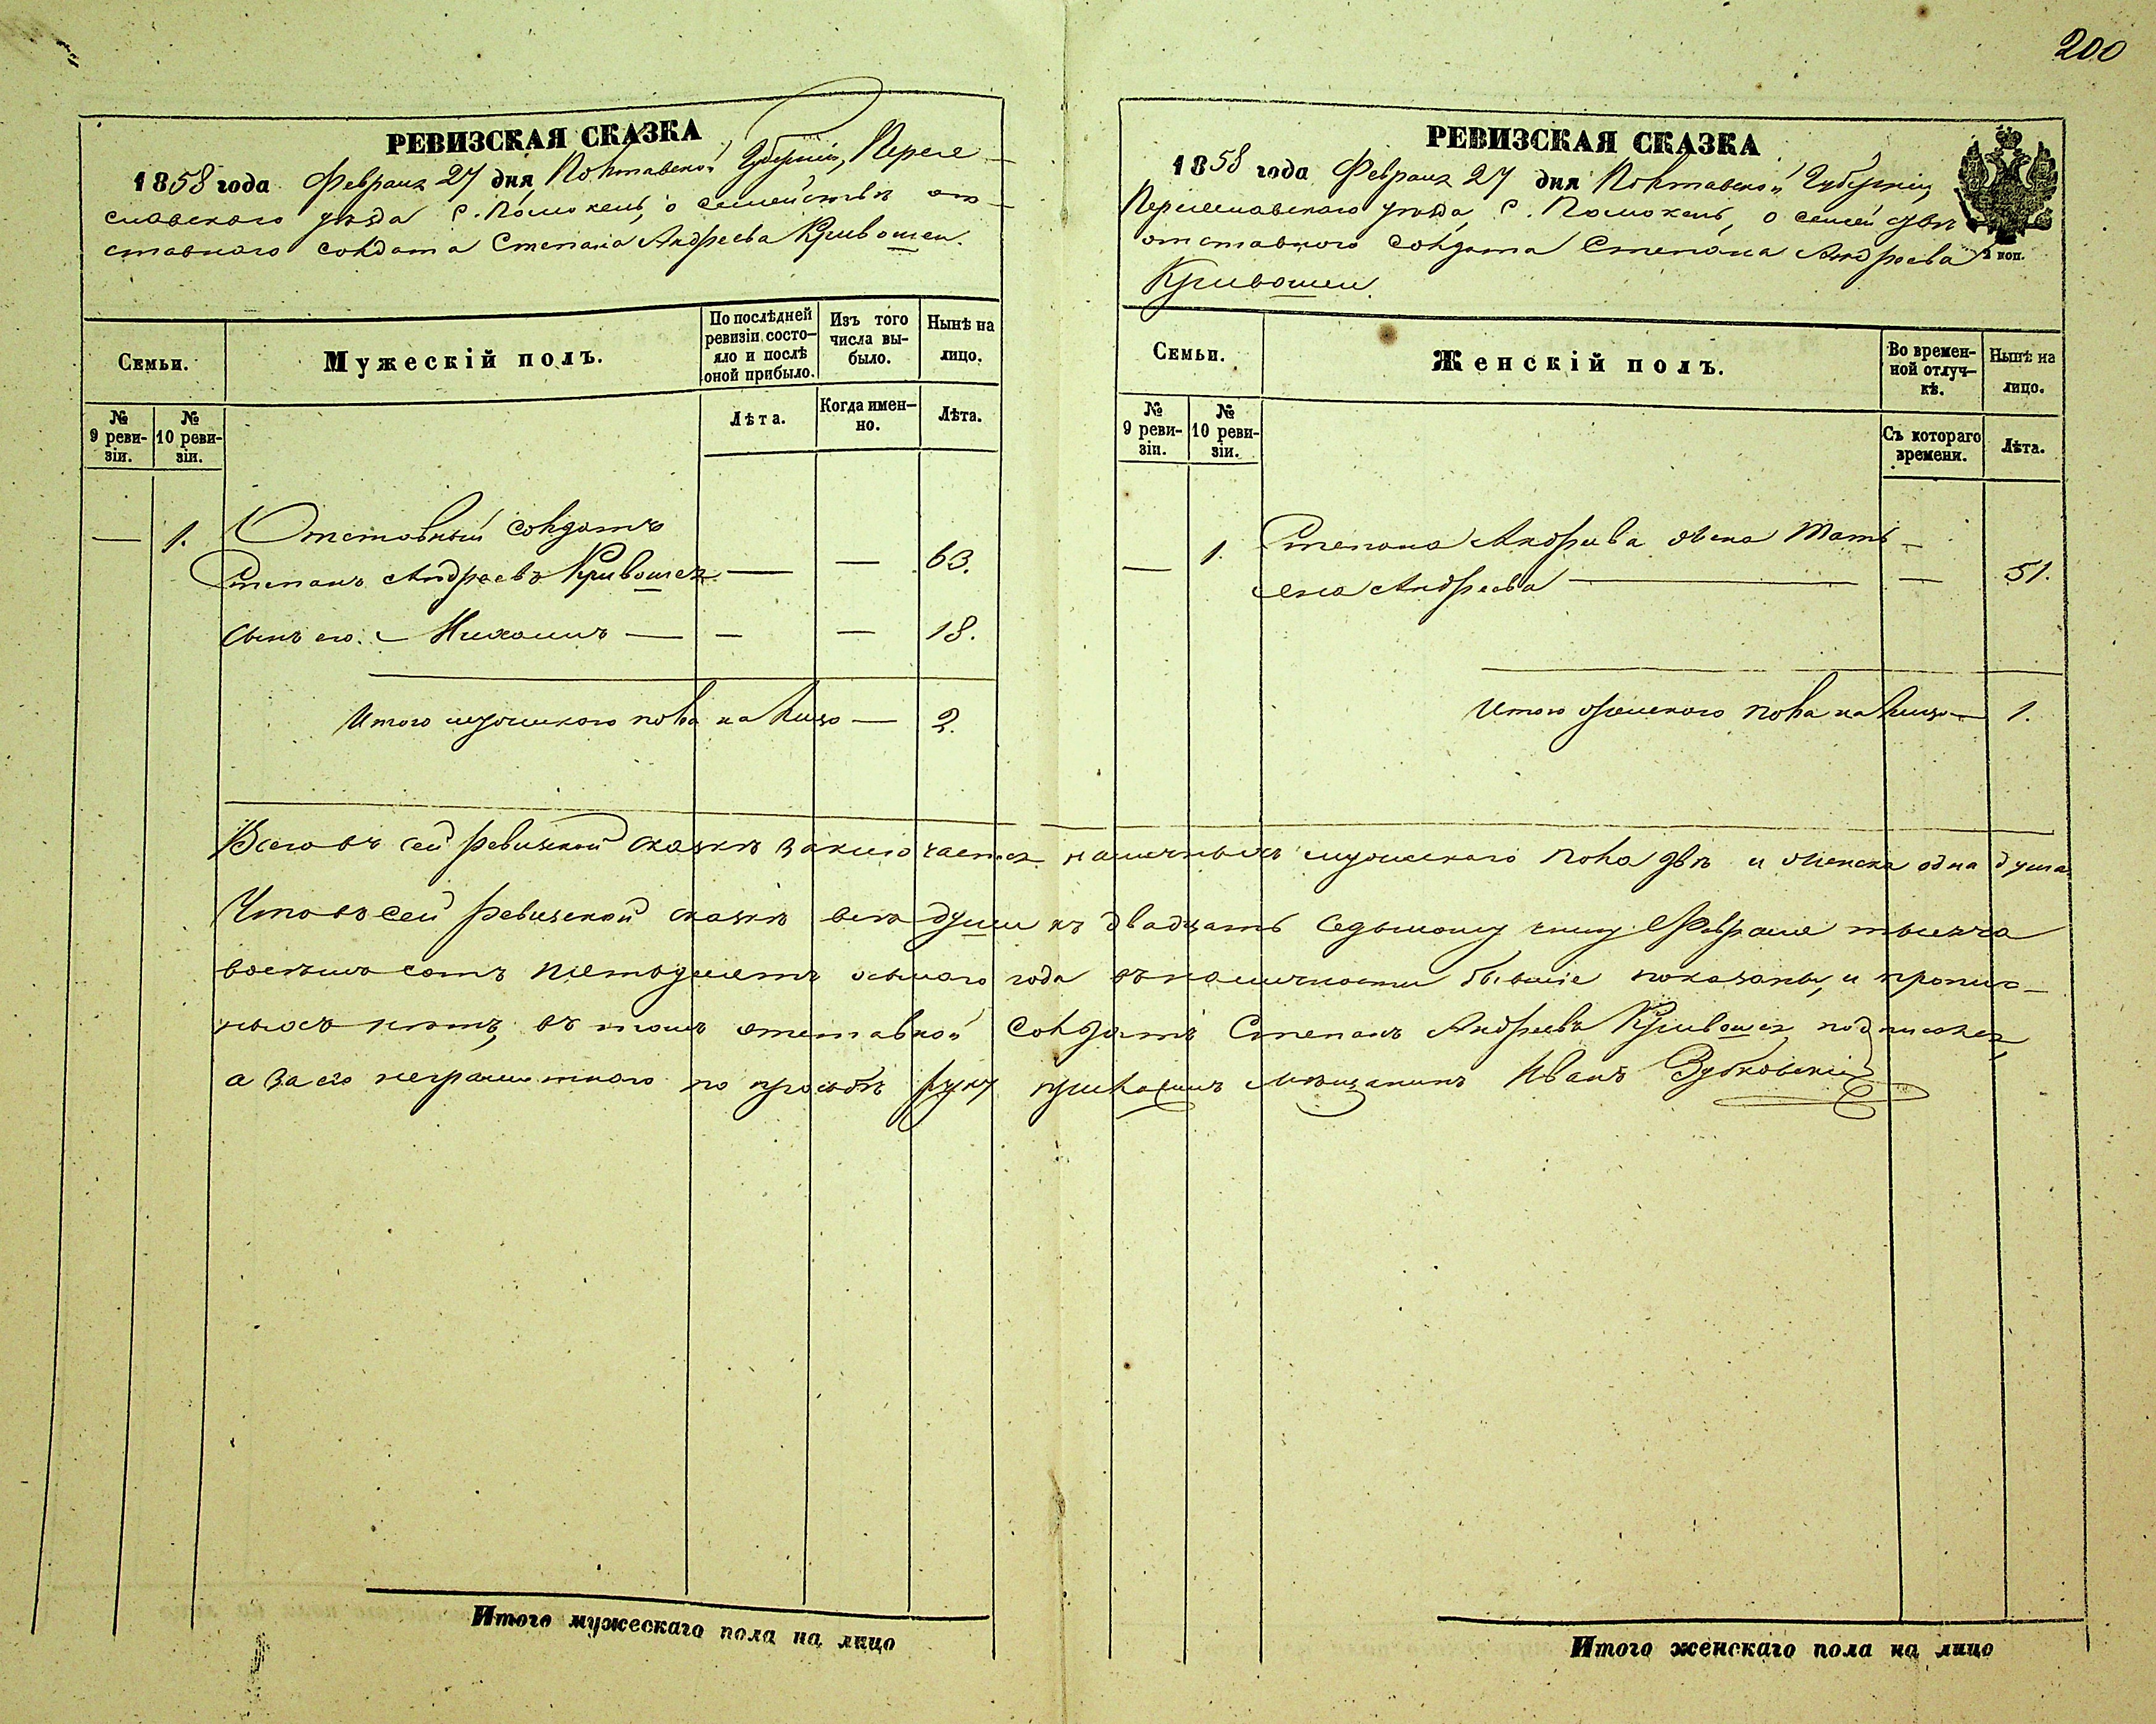 200
РЕВИЗСКАЯ СКАЗКА
1858 года Февраля 27 дня Полтавской Губерніи, Перея-
славского уѣзда с. Помокель, о семействѣ от-
ставного солдата Степана Андреева Кривошеи.
Семьи.
Мужескій полъ.
По послѣдней ревизіи состо-
яло и послѣ оной прибыло.
Изъ того числа вы-
было.
Нынѣ на лицо.
№ 9 реви-
зіи.
№ 10 реви-
зіи.
Лѣта.
Когда имен-
но.
Лѣта.
— 1. Отставный солдатъ
Степанъ Андреевъ Кривошея — — 63.
Сынъ его Михаилъ — — — 18.
Итого мужескаго пола на лицо — 2.
РЕВИЗСКАЯ СКАЗКА
1858 года Февраля 27 дня Полтавской Губерніи,
Переяславского уѣзда, с. Помокель, о семействѣ
отставного солдата Степана Андреева
Кривошеи.
2 коп.
Семьи.
Женскій полъ.
Во времен-
ной отлуч-
кѣ.
Нынѣ на лицо.
№ 9 реви-
зіи.
№ 10 реви-
зіи.
Съ котораго времени.
Лѣта.
— 1. Степана Андреева жена Тать-
яна Андреева — — 51.
Итого женского пола на лицо — 1.
Всего въ сей ревизской сказкѣ заключается наличныхъ мужескаго пола двѣ и женска одна душа
Что въ сей ревизской сказкѣ всѣ души къ двадцать седьмому числу Февраля тысяча
восемь сотъ пятьдесятъ осьмого года въ наличности бывшіе показаны, и пропис-
ныхъ нѣтъ, въ томъ отставной солдатъ Степанъ Андреевъ Кривошея подписался,
а за его неграмотного по прозьбѣ руку приложилъ мѣщанинъ Иванъ Зубковскій
Итого мужескаго пола на лицо
Итого женскаго пола на лицо